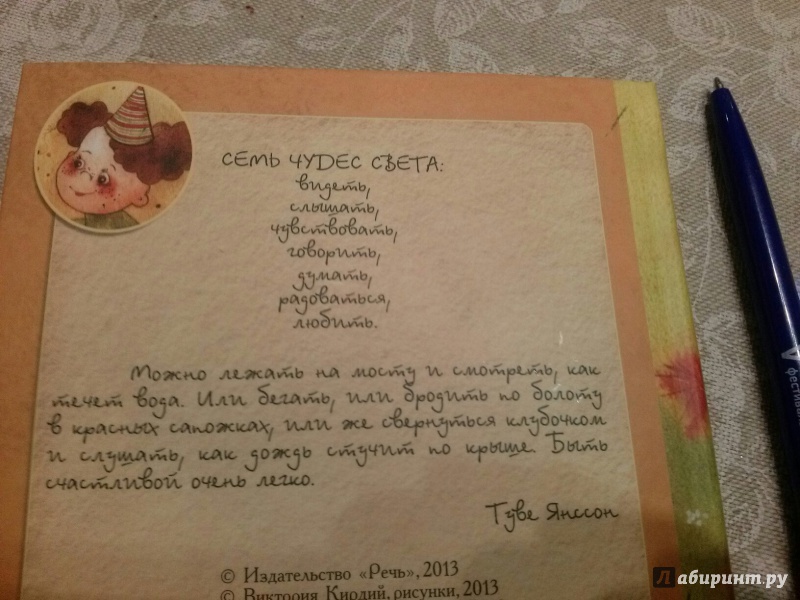 СЕМЬ ЧУДЕС СВЕТА:
видеть,
слышать,
чувствовать,
говорить,
думать,
радоваться,
любить.
Можно лежать на мосту и смотреть, как
течет вода. Или бегать, или бродить по болоту
в красных сапожках, или же свернуться клубочком
и слушать, как дождь стучит по крыше. Быть
счастливой очень легко.
Туве Янссон
© Издательство «Речь», 2013
© Виктория Кирдий, рисунки, 2013
Лабиринт.ру